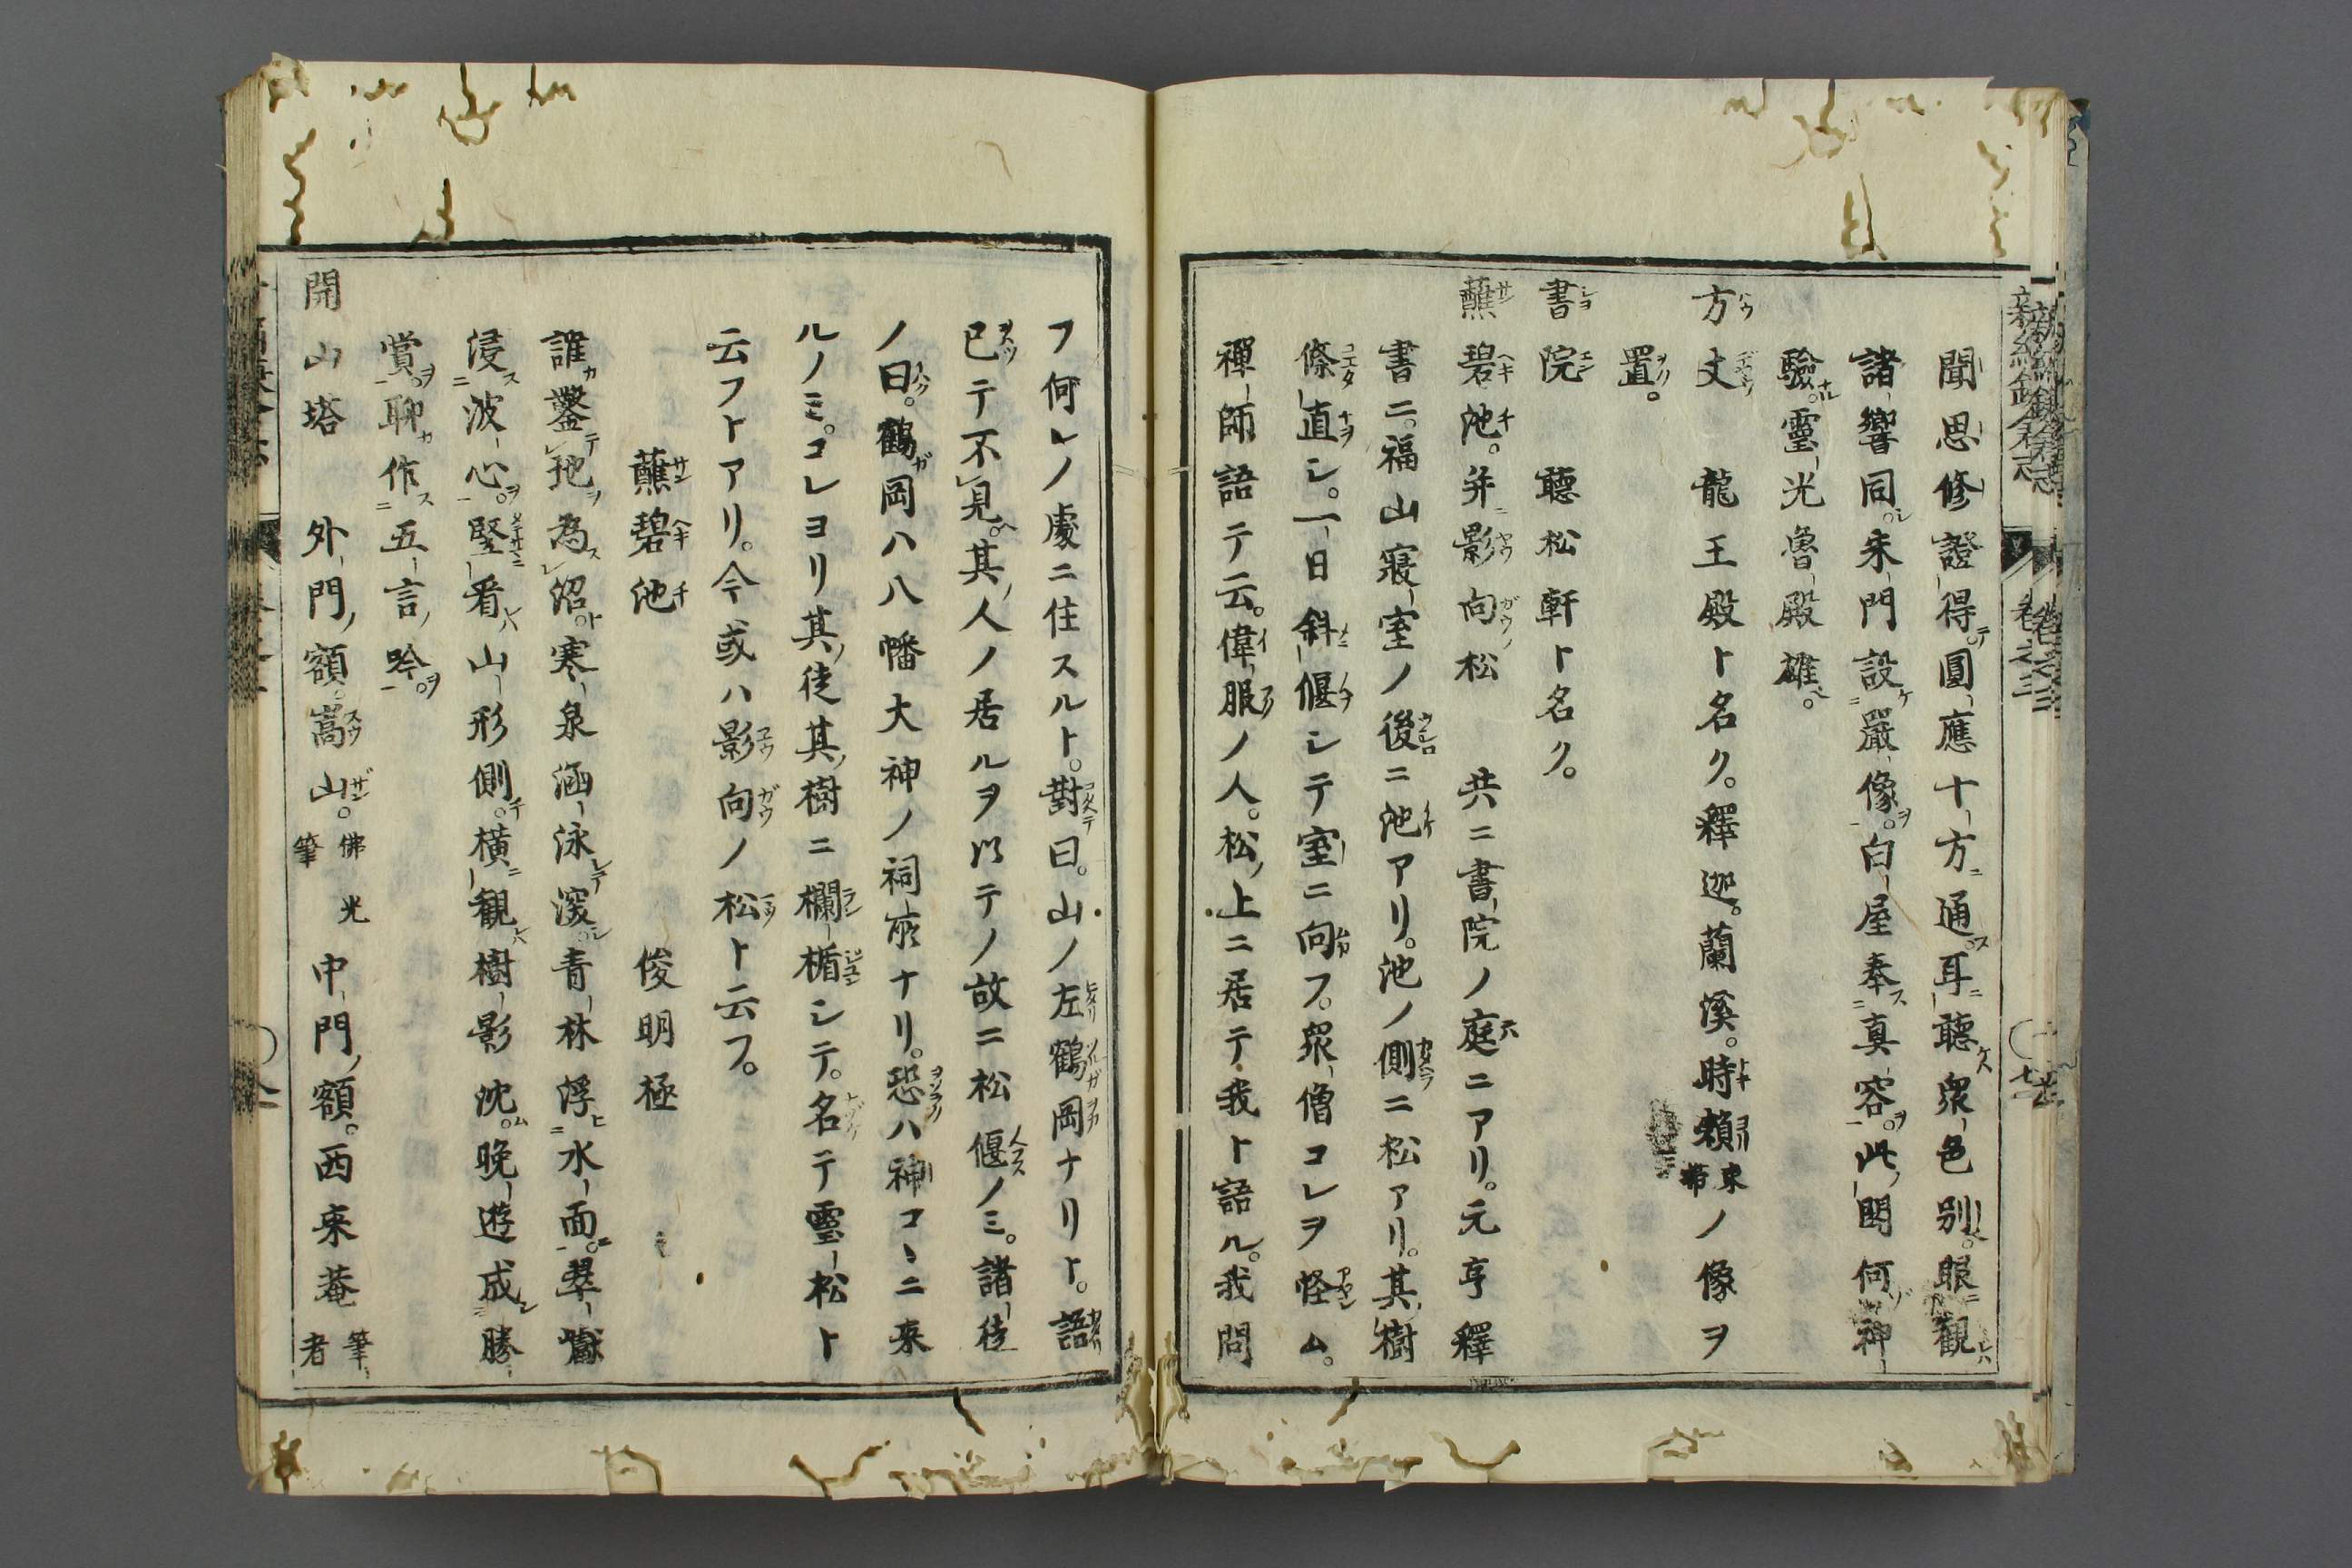 聞思修證得圓應十方通。耳聽衆色別。眼觀
諸響同。朱門設嚴像。白屋奉真容。此閣何神
驗。靈光魯殿雄。
方丈　龍王殿ト名ク。釋迦。蘭溪。時頼束帯ノ像ヲ
置。
書院　聽松軒ト名ク。
蘸碧池。并影向松　共ニ書院ノ庭ニアリ。元亨釋
書ニ。福山寢室ノ後ニ池アリ。池ノ側ニ松アリ。其樹
條直シ。一日斜偃シテ室ニ向フ。衆僧コレヲ怪ム。
禪師語テ云。偉服ノ人。松上ニ居テ我ト語ル。我問
フ何レノ處ニ住スルト。對曰。山ノ左鶴岡ナリト。語
已テ不見。其人ノ居ルヲ以テノ故ニ松偃ノミ。諸徒
ノ曰。鶴岡ハ八幡大神ノ祠所ナリ。恐ハ神コヽニ来
ルノミ。コレヨリ其徒其樹ニ欄楯シテ。名テ靈松ト
云フトアリ。今或ハ影向ノ松ト云フ。
蘸碧池　俊明極
誰鑿地為沼。寒泉涵泳深。青林浮水面。翠巘
浸波心。竪看山形側。横觀樹影沈。晩遊成勝
賞。聊作五言吟。
開山塔　外門額嵩山。佛光筆　中門額。西来菴筆者
新編鎌倉志　卷之三